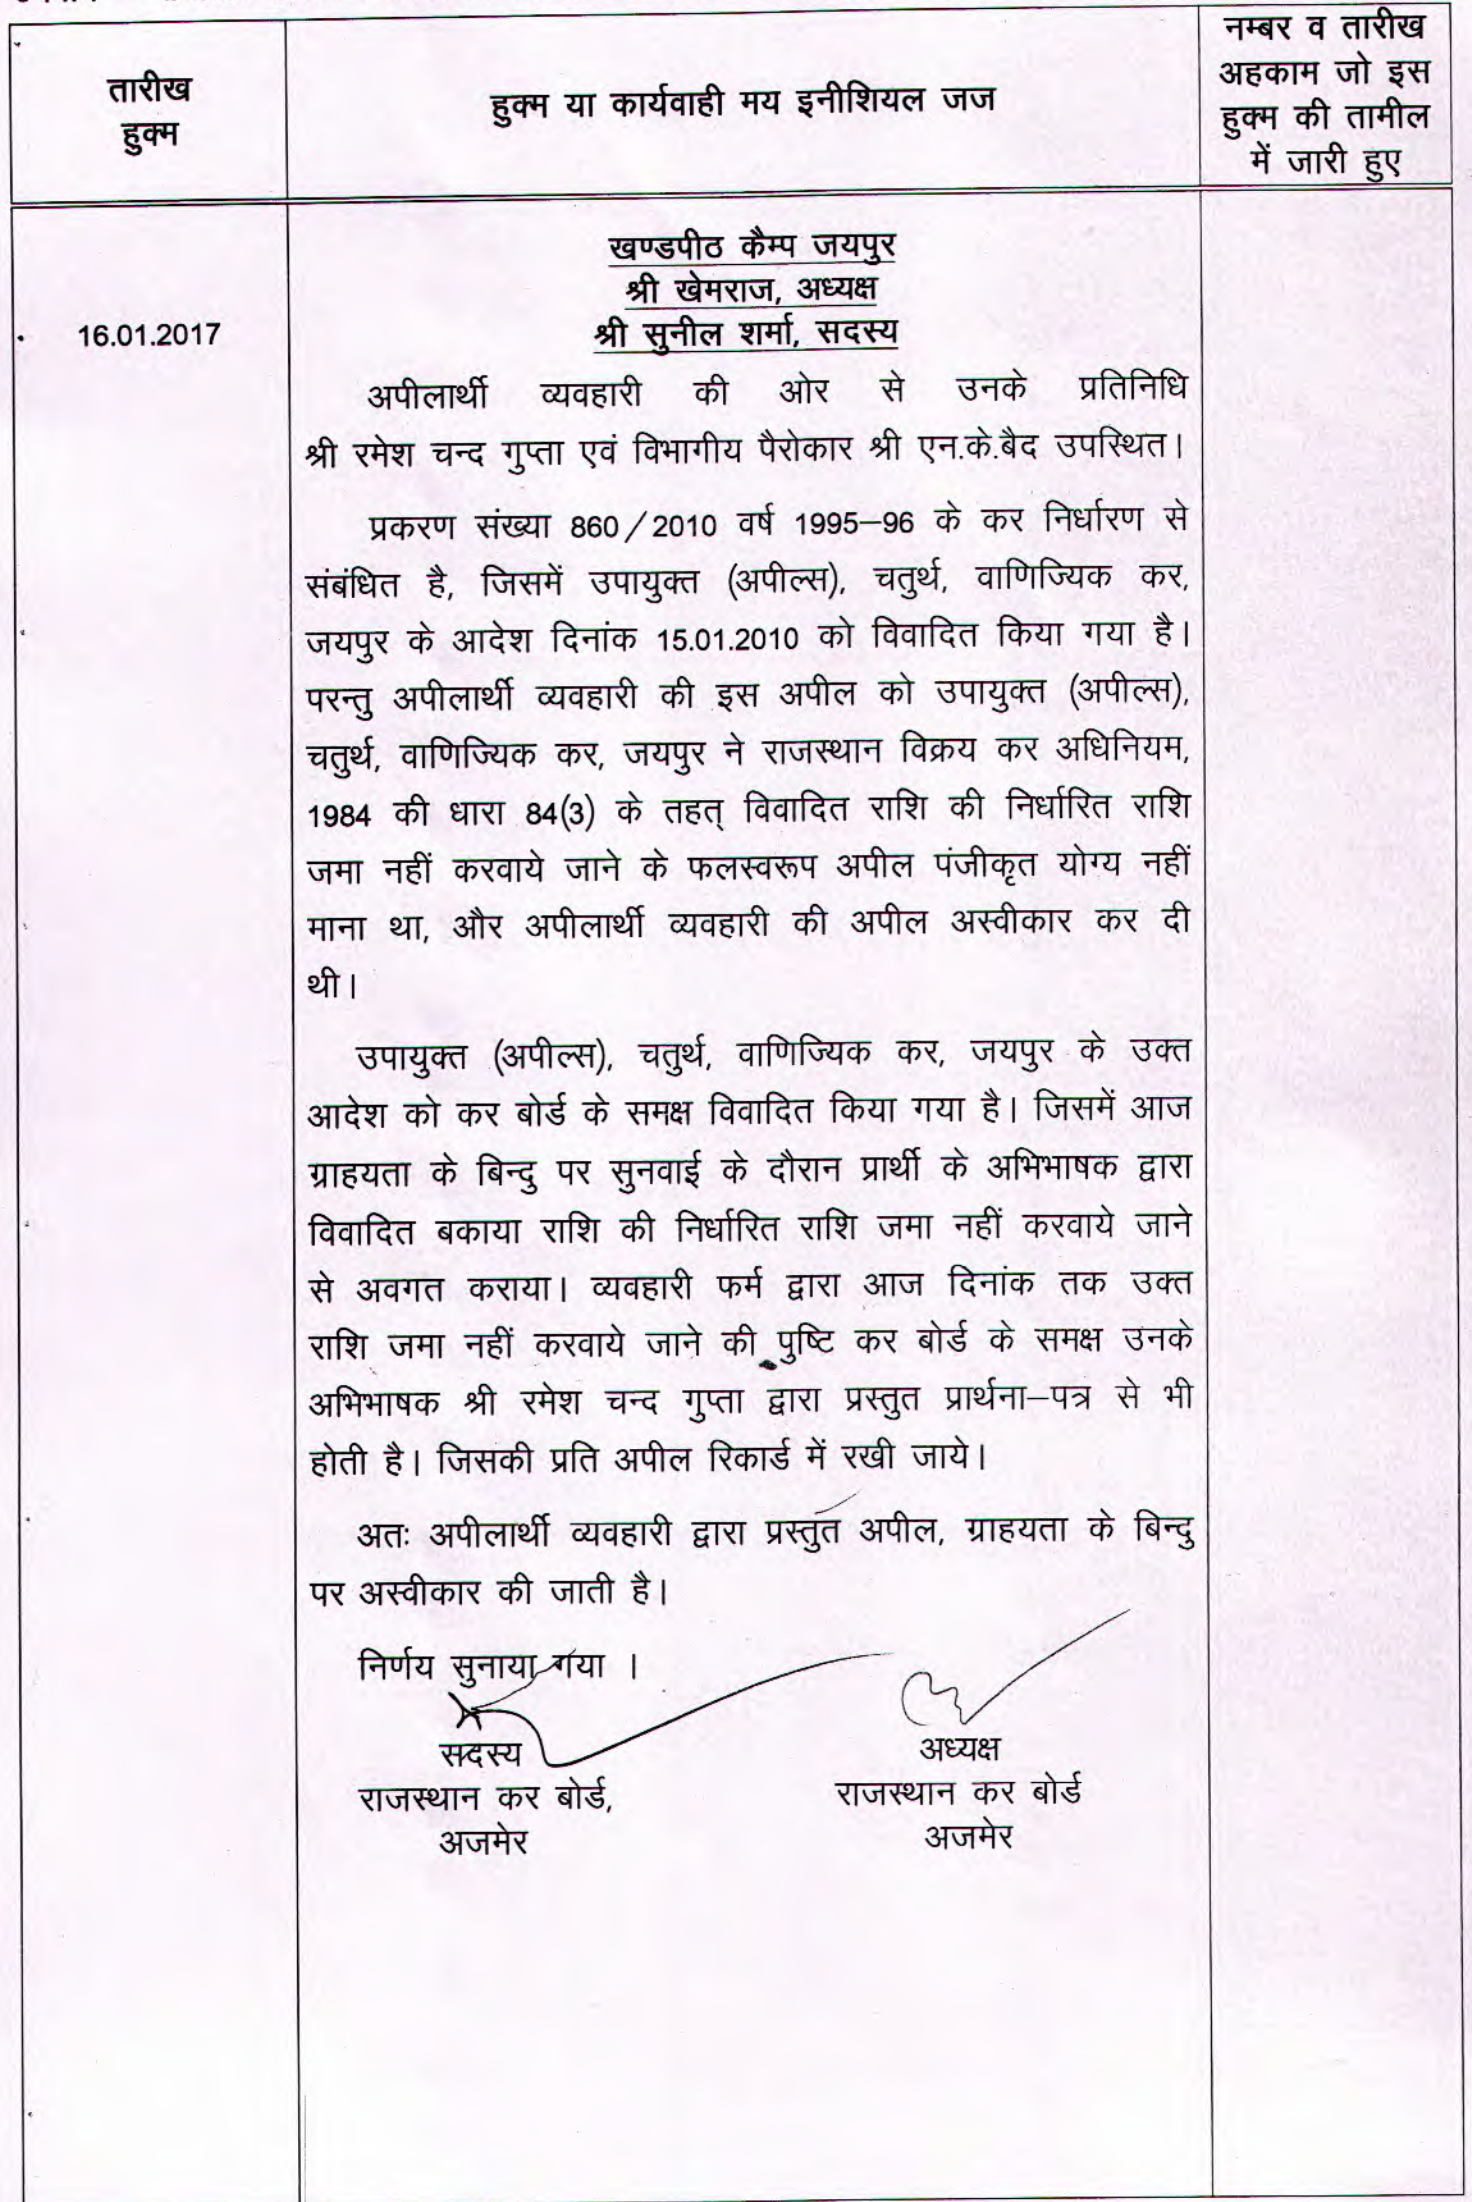 तारीख
हुक्म
हुक्म या कार्यवाही मय इनीशियल जज
नम्बर व तारीख
अहकाम जो इस
हुक्म की तामील
में जारी हुए
16.01.2017
खण्डपीठ कैम्प जयपुर
श्री खेमराज, अध्यक्ष
श्री सुनील शर्मा, सदस्य
अपीलार्थी व्यवहारी की ओर से उनके प्रतिनिधि
श्री रमेश चन्द गुप्ता एवं विभागीय पैरोकार श्री एन.के.बैद उपस्थित।
प्रकरण संख्या 860/2010 वर्ष 1995–96 के कर निर्धारण से
संबंधित है, जिसमें उपायुक्त (अपील्स), चतुर्थ, वाणिज्यिक कर,
जयपुर के आदेश दिनांक 15.01.2010 को विवादित किया गया है।
परन्तु अपीलार्थी व्यवहारी की इस अपील को उपायुक्त (अपील्स),
चतुर्थ, वाणिज्यिक कर, जयपुर ने राजस्थान विक्रय कर अधिनियम,
1984 की धारा 84(3) के तहत् विवादित राशि की निर्धारित राशि
जमा नहीं करवाये जाने के फलस्वरूप अपील पंजीकृत योग्य नहीं
माना था, और अपीलार्थी व्यवहारी की अपील अस्वीकार कर दी
थी।
उपायुक्त (अपील्स), चतुर्थ, वाणिज्यिक कर, जयपुर के उक्त
आदेश को कर बोर्ड के समक्ष विवादित किया गया है। जिसमें आज
ग्राहयता के बिन्दु पर सुनवाई के दौरान प्रार्थी के अभिभाषक द्वारा
विवादित बकाया राशि की निर्धारित राशि जमा नहीं करवाये जाने
से अवगत कराया। व्यवहारी फर्म द्वारा आज दिनांक तक उक्त
राशि जमा नहीं करवाये जाने की पुष्टि कर बोर्ड के समक्ष उनके
अभिभाषक श्री रमेश चन्द गुप्ता द्वारा प्रस्तुत प्रार्थना–पत्र से भी
होती है। जिसकी प्रति अपील रिकार्ड में रखी जाये।
अतः अपीलार्थी व्यवहारी द्वारा प्रस्तुत अपील, ग्राहयता के बिन्दु
पर अस्वीकार की जाती है।
निर्णय सुनाया गया ।
सदस्य
राजस्थान कर बोर्ड,
अजमेर
अध्यक्ष
राजस्थान कर बोर्ड
अजमेर